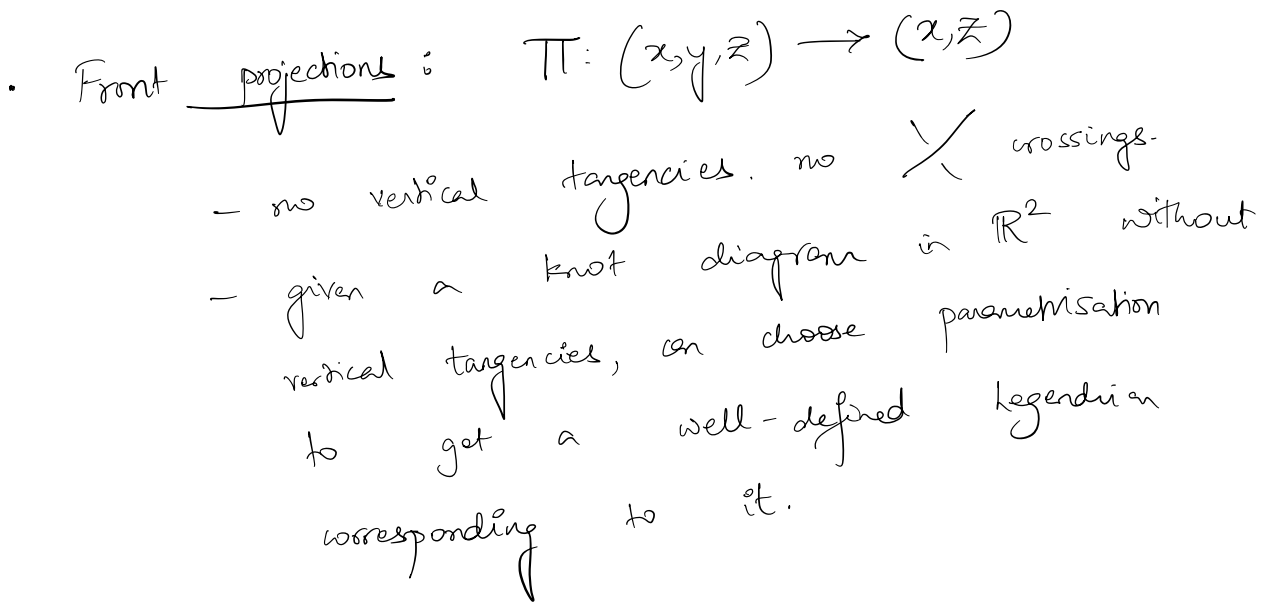 • Front projections : Π: (x,y,z) → (x,z)
- no vertical tangencies. no crossings.
- given a knot diagram in ℝ² without
vertical tangencies, can choose parametrisation
to get a well-defined Legendrian
corresponding to it.